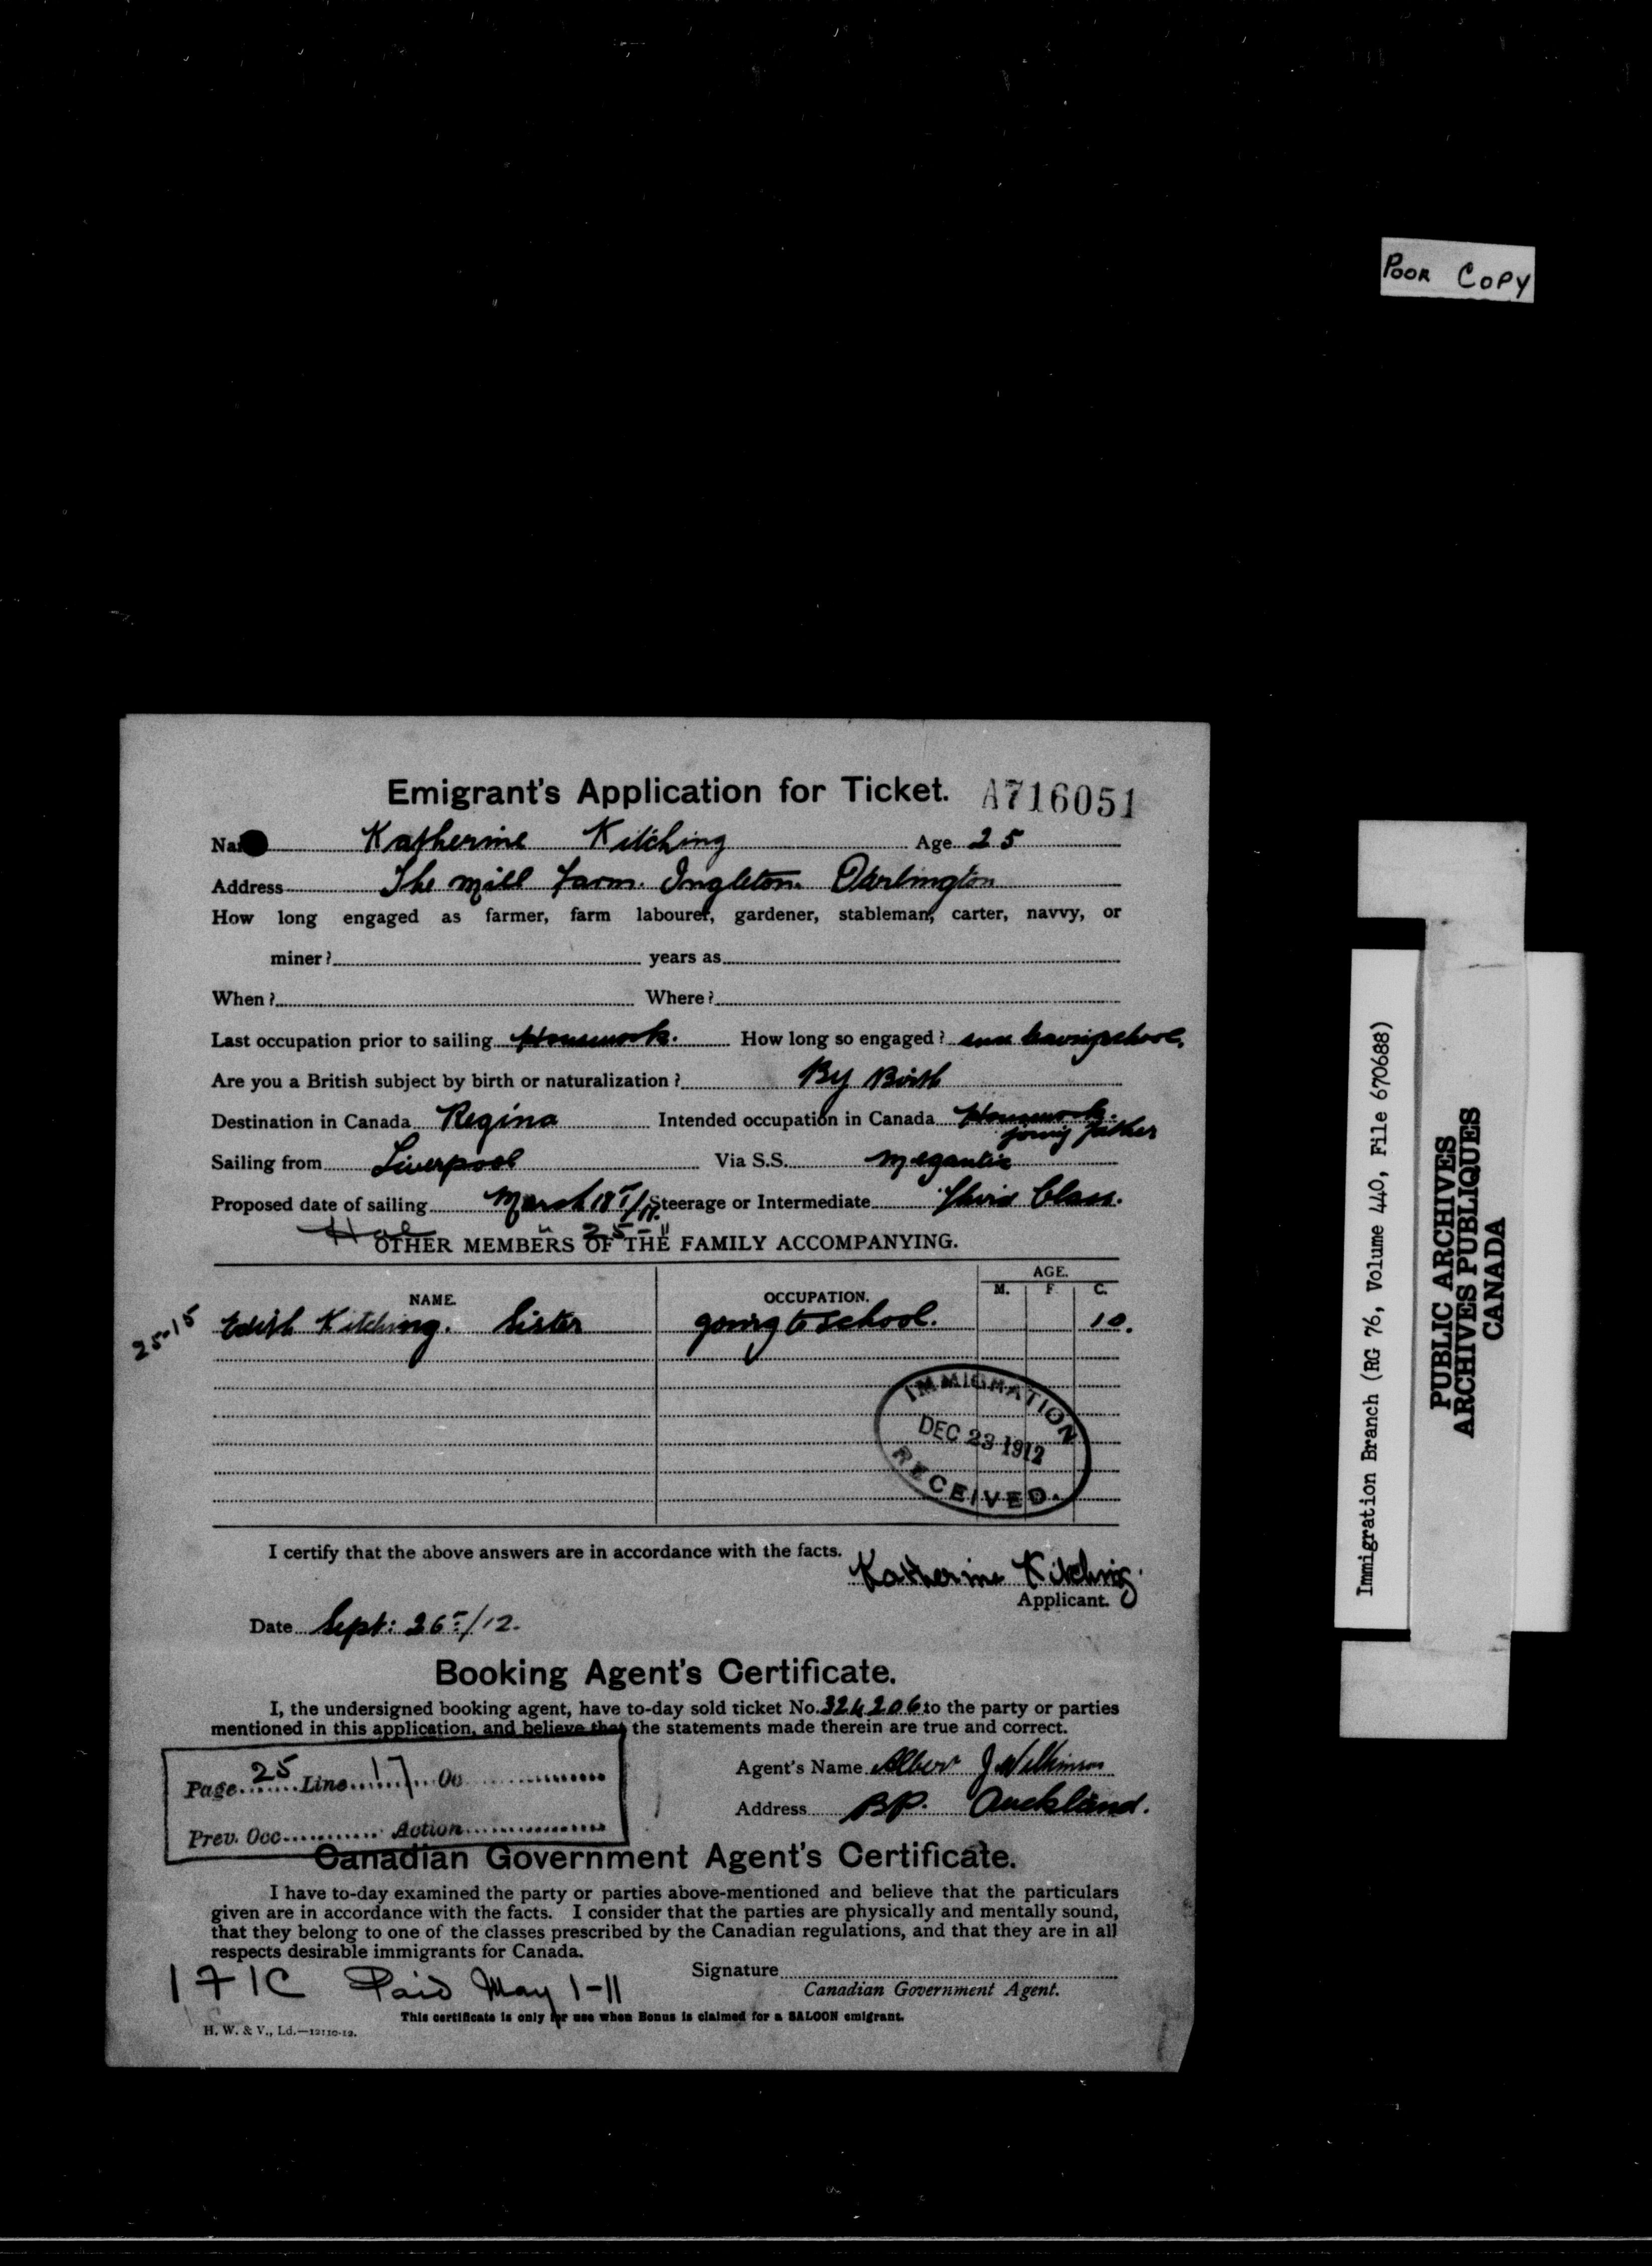 POOR COPY
Emigrant's Application for Ticket. A716051
Na Katherine Kitching Age 25
Address The Mill Farm. Ingleton. Darlington
How long engaged as farmer, farm labourer, gardener, stableman, carter, navvy, or
miner? years as
When? Where?
Last occupation prior to sailing Housework. How long so engaged? since leaving school.
Are you a British subject by birth or naturalization? By Birth
Destination in Canada Regina Intended occupation in Canada Housework.
joining father
Sailing from Liverpool Via S.S. Megantic
Proposed date of sailing March 18 Steerage or Intermediate Third Class.
25-11
OTHER MEMBERS OF THE FAMILY ACCOMPANYING.
AGE.
NAME. OCCUPATION. M. F. C.
25-15 Edith Kitching. Sister going to school. 10.
IMMIGRATION
DEC 23 1912
RECEIVED.
I certify that the above answers are in accordance with the facts.
Katherine Kitching.
Applicant.
Date Sept: 26/12.
Booking Agent's Certificate.
I, the undersigned booking agent, have to-day sold ticket No. 324206 to the party or parties
mentioned in this application, and believe that the statements made therein are true and correct.
Page 25 Line 17 Oc
Prev. Occ Action
Agent's Name Albert J Wilkinson
Address BP. Auckland.
Canadian Government Agent's Certificate.
I have to-day examined the party or parties above-mentioned and believe that the particulars
given are in accordance with the facts. I consider that the parties are physically and mentally sound,
that they belong to one of the classes prescribed by the Canadian regulations, and that they are in all
respects desirable immigrants for Canada.
Signature
Canadian Government Agent.
1 + 1C Paid May 1-11
This certificate is only for use when Bonus is claimed for a SALOON emigrant.
H. W. & V., Ld.
Immigration Branch (RG 76, Volume 440, File 670688)
PUBLIC ARCHIVES
ARCHIVES PUBLIQUES
CANADA